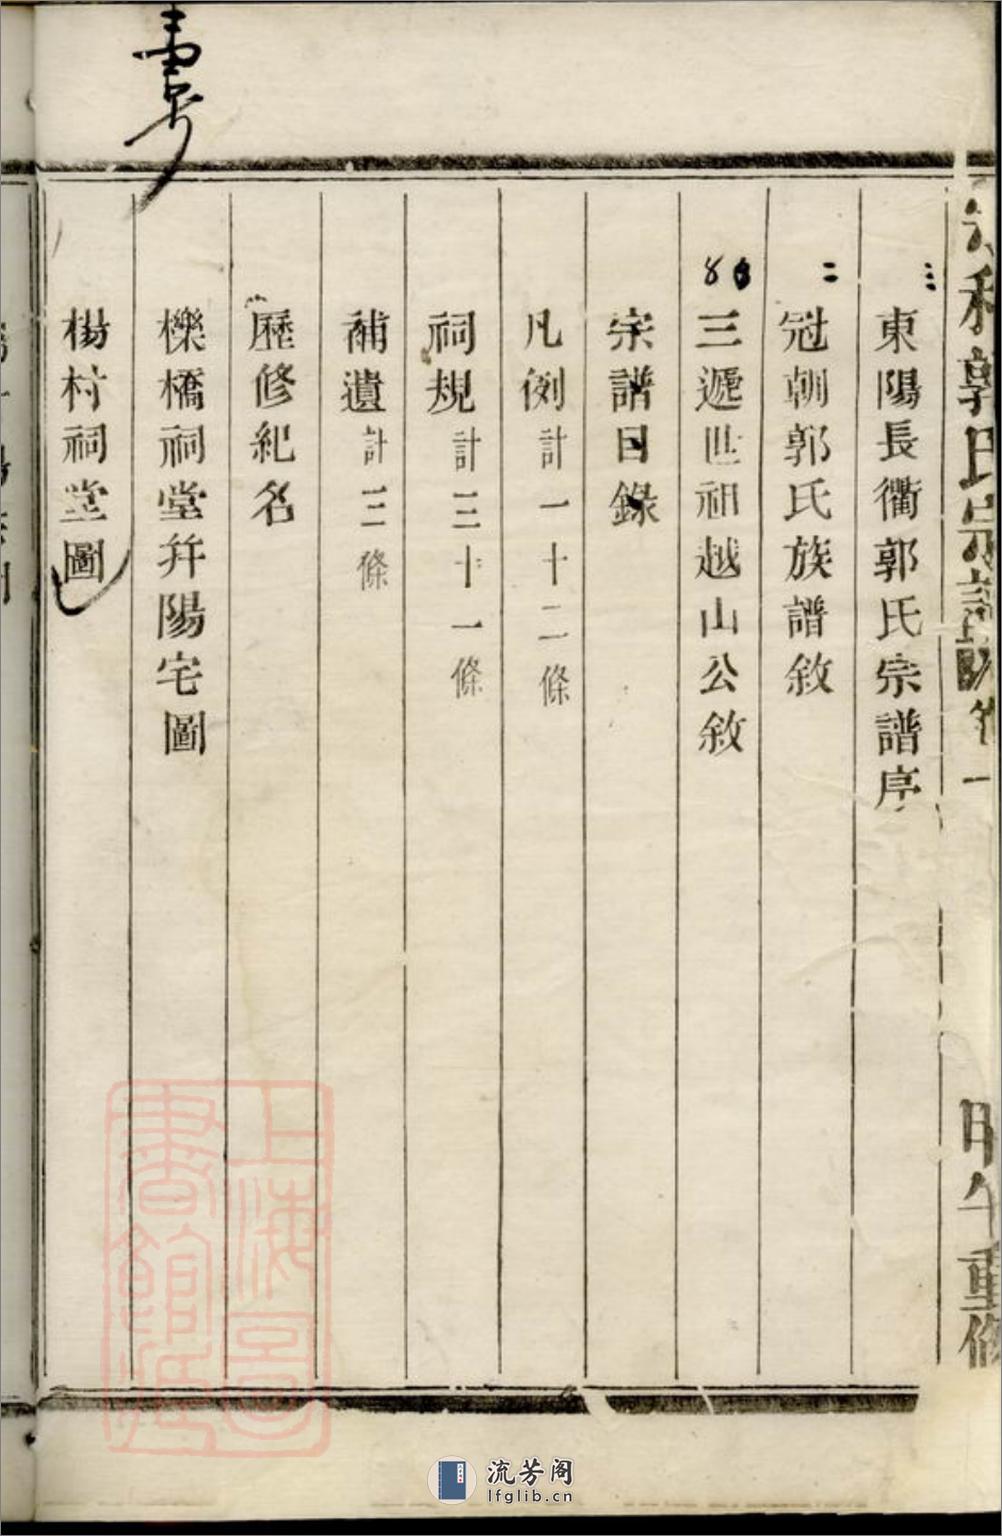 和郭氏宗譜
卷一
甲午重修
東陽長衢郭氏宗譜序
冠朝郭氏族譜敘
三遞世祖越山公敘
宗譜目錄
凡例計一十二條
祠規計三十一條
補遺計三條
歷修紀名
櫟橋祠堂幷陽宅圖
楊村祠堂圖
上海圖書館藏
流芳阁
lfglib.cn